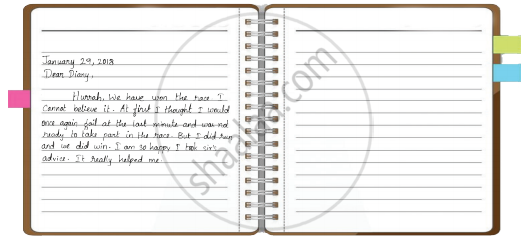 January 29, 2018
Dear Diary,
Hurrah, We have won the race I
Cannot believe it. At first I thought I would
once again fail at the last minute and was not
ready to take part in the race. But I did run
and we did win. I am so happy I took sir's
advice. It really helped me.
shaalaa.com